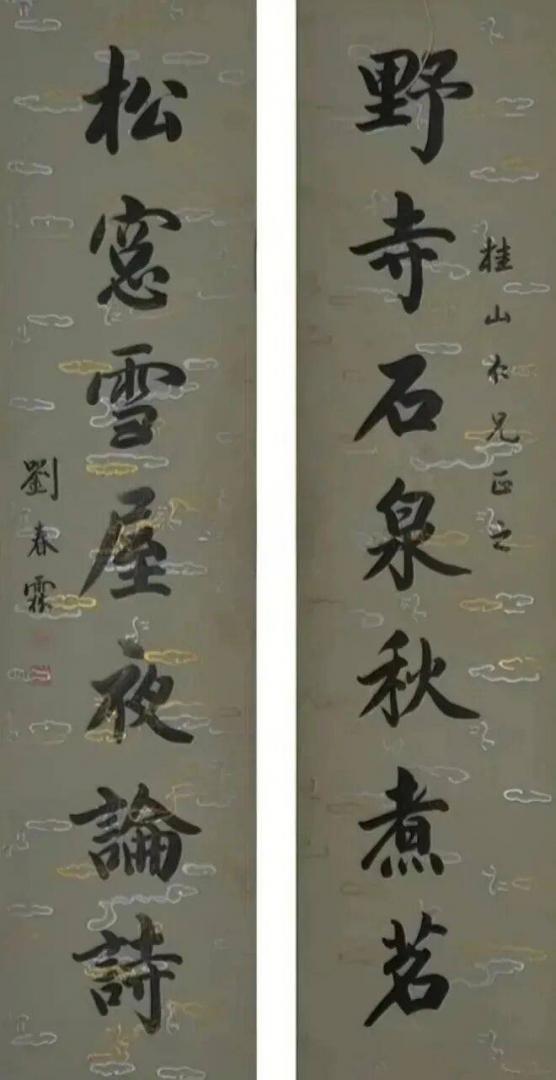 桂山仁兄正之
野寺石泉秋煮茗
松窓雪屋夜論詩
劉春霖